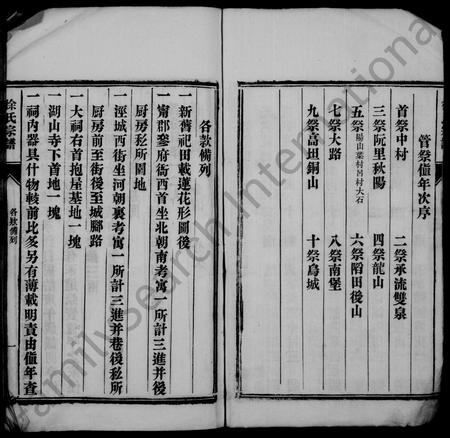 管祭值年次序
首祭中村
二祭承流雙泉
三祭阮里秋陽
四祭龍山
五祭陽山葉村呂村大石
六祭䧟田後山
七祭大路
八祭南堡
九祭高坦銅山
十祭烏城
各款備列
一新舊祀田載蓮花形圖後
一甯郡鑿府衙西首坐北朝南考寓一所計三進并後
厨房秘所園地
一涇城西街坐河朝裏考寓一所計三進并巷後秘所
厨房前至街後至城腳路
一大祠右首抱屋基地一塊
一湖山寺下首地一塊
一祠內器具什物較前比多另有薄載明責由值年查
徐氏宗譜
各款備列
一
FamilySearch International